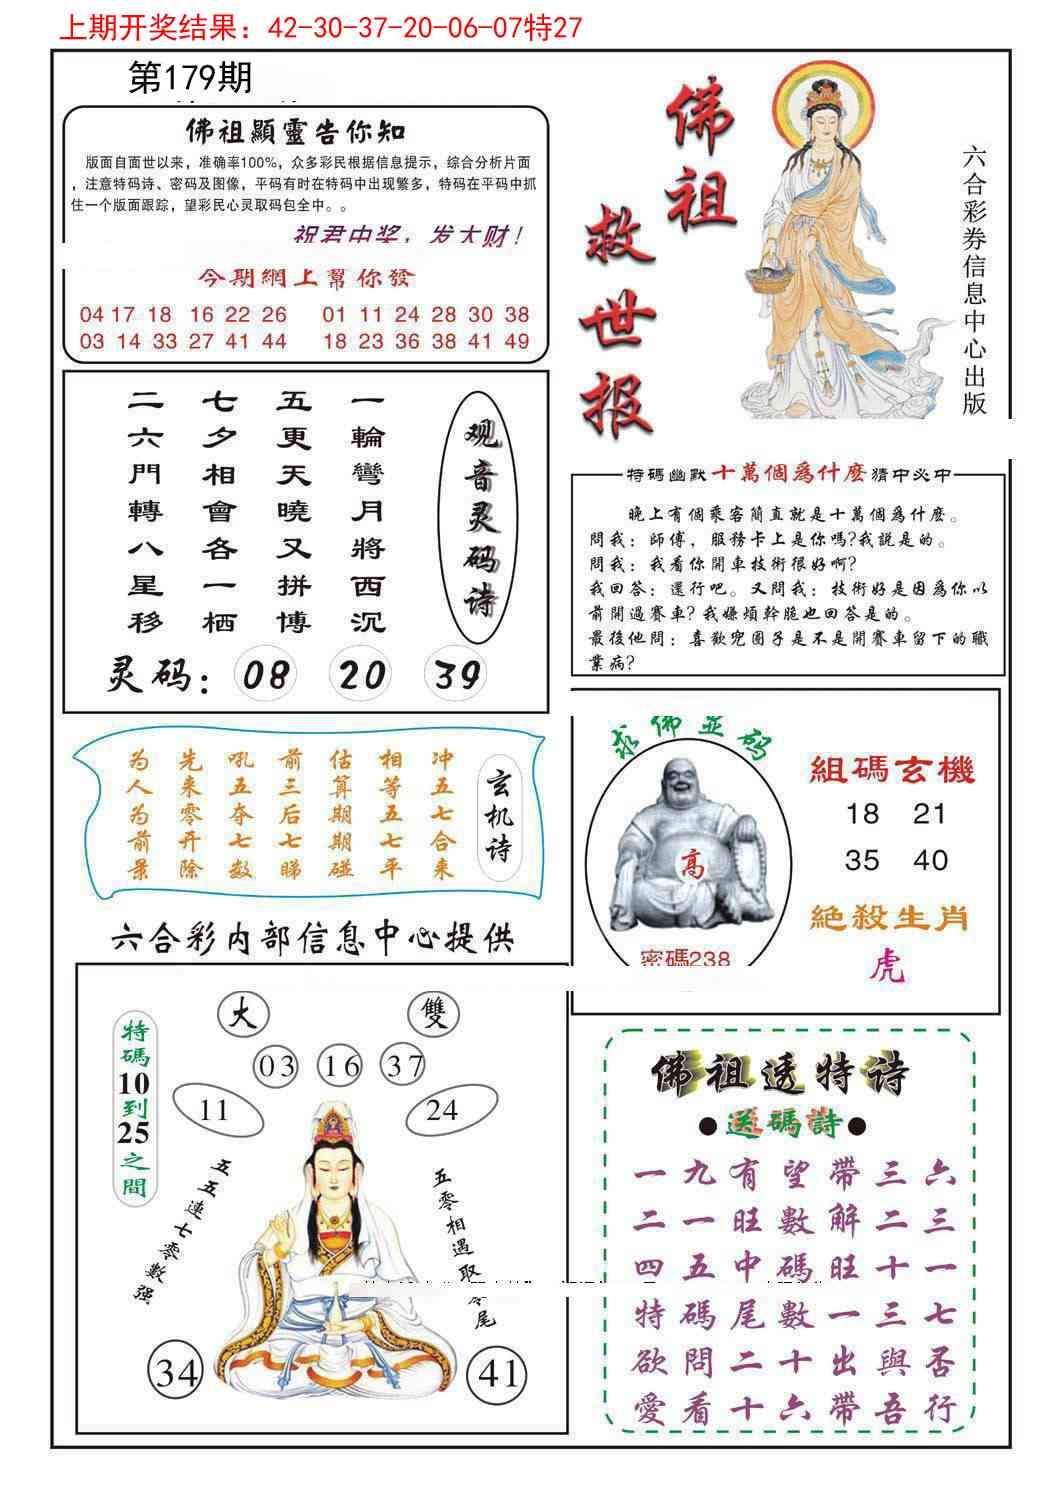 上期开奖结果：42-30-37-20-06-07特27
第179期
佛祖顯靈告你知
版面自面世以来，准确率100%，众多彩民根据信息提示，综合分析片面
，注意特码诗、密码及图像，平码有时在特码中出现繁多，特码在平码中抓
住一个版面跟踪，望彩民心灵取码包全中。。
祝君中奖，发大财！
今期網上幫你發
04 17 18 16 22 26 01 11 24 28 30 38
03 14 33 27 41 44 18 23 36 38 41 49
佛祖
救世报
六合彩券信息中心出版
观音灵码诗
一輪彎月將西沉
五更天曉又拼博
七夕相會各一栖
二六門轉八星移
灵码：08 20 39
特碼幽默十萬個爲什麽猜中必中
晚上有個乘客簡直就是十萬個爲什麽。
問我：師傅，服務卡上是你嗎?我説是的。
問我：我看你開車技術很好啊?
我回答：還行吧。又問我：技術好是因爲你以
前開過賽車?我嫌煩幹脆也回答是的。
最後他問：喜歡兜圈子是不是開賽車留下的職
業病?
玄机诗
冲五七合来
相等五七平
估算期期碰
前三后七睇
吼五夺七数
先来零开除
为人为前景
求佛显码
高
密碼238
組碼玄機
18 21
35 40
絕殺生肖
虎
六合彩内部信息中心提供
特碼10到25之間
大 雙
03 16 37
11 24
五五連七零數强
五零相遇取零尾
34 41
佛祖透特诗
●送碼詩●
一九有望帶三六
二一旺數解二三
四五中碼旺十一
特碼尾數一三七
欲問二十出與否
愛看十六帶吾行